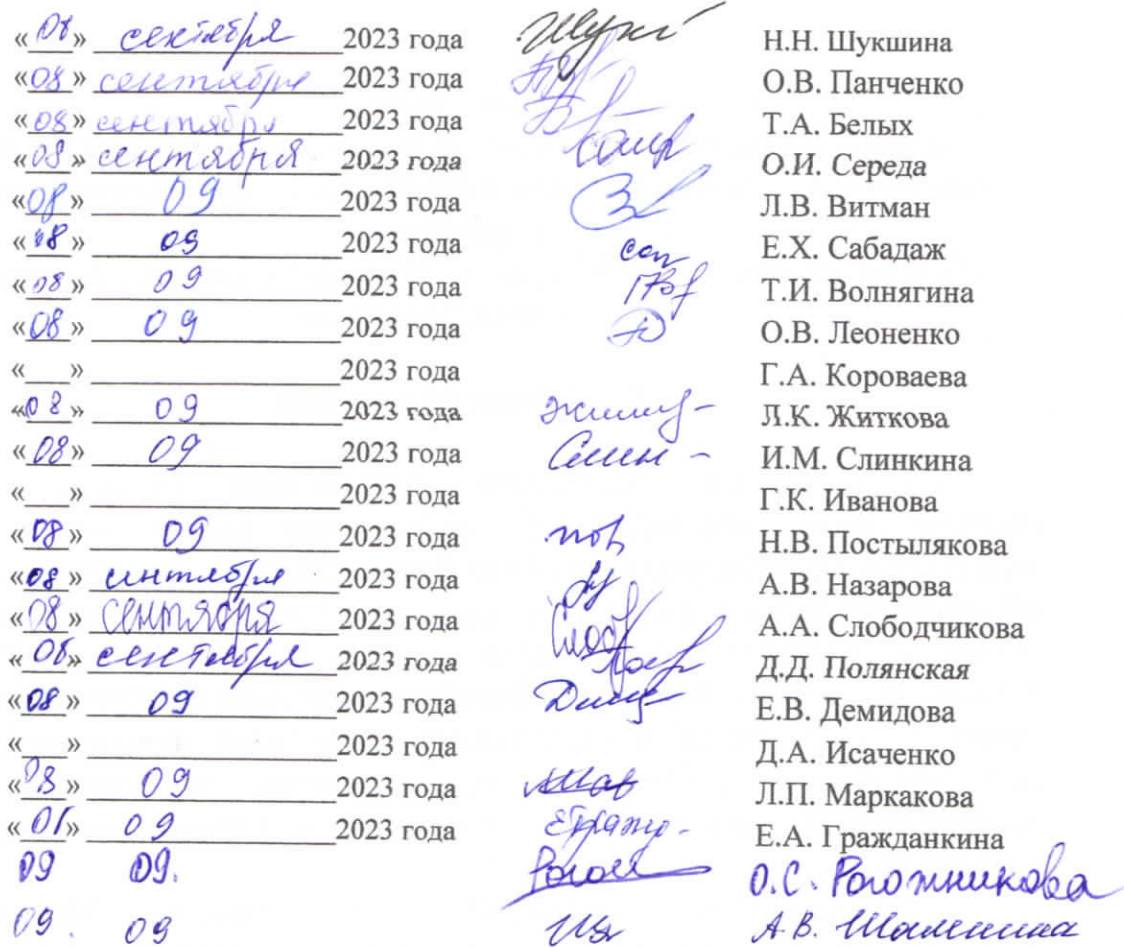 «08» сентября 2023 года Шукш Н.Н. Шукшина
«08» сентября 2023 года О.В. Панченко
«08» сентября 2023 года Т.А. Белых
«08» сентября 2023 года О.И. Середа
«08» 09 2023 года Л.В. Витман
«08» 09 2023 года Е.Х. Сабадаж
«08» 09 2023 года Т.И. Волнягина
«08» 09 2023 года О.В. Леоненко
«___» ___ 2023 года Г.А. Короваева
«08» 09 2023 года Л.К. Житкова
«08» 09 2023 года И.М. Слинкина
«___» ___ 2023 года Г.К. Иванова
«08» 09 2023 года Н.В. Постылякова
«08» сентября 2023 года А.В. Назарова
«08» сентября 2023 года А.А. Слободчикова
«08» сентября 2023 года Д.Д. Полянская
«08» 09 2023 года Е.В. Демидова
«___» ___ 2023 года Д.А. Исаченко
«08» 09 2023 года Л.П. Маркакова
«08» 09 2023 года Е.А. Гражданкина
09 09. О.С. Рогожникова
09. 09 А.В. Шамшина